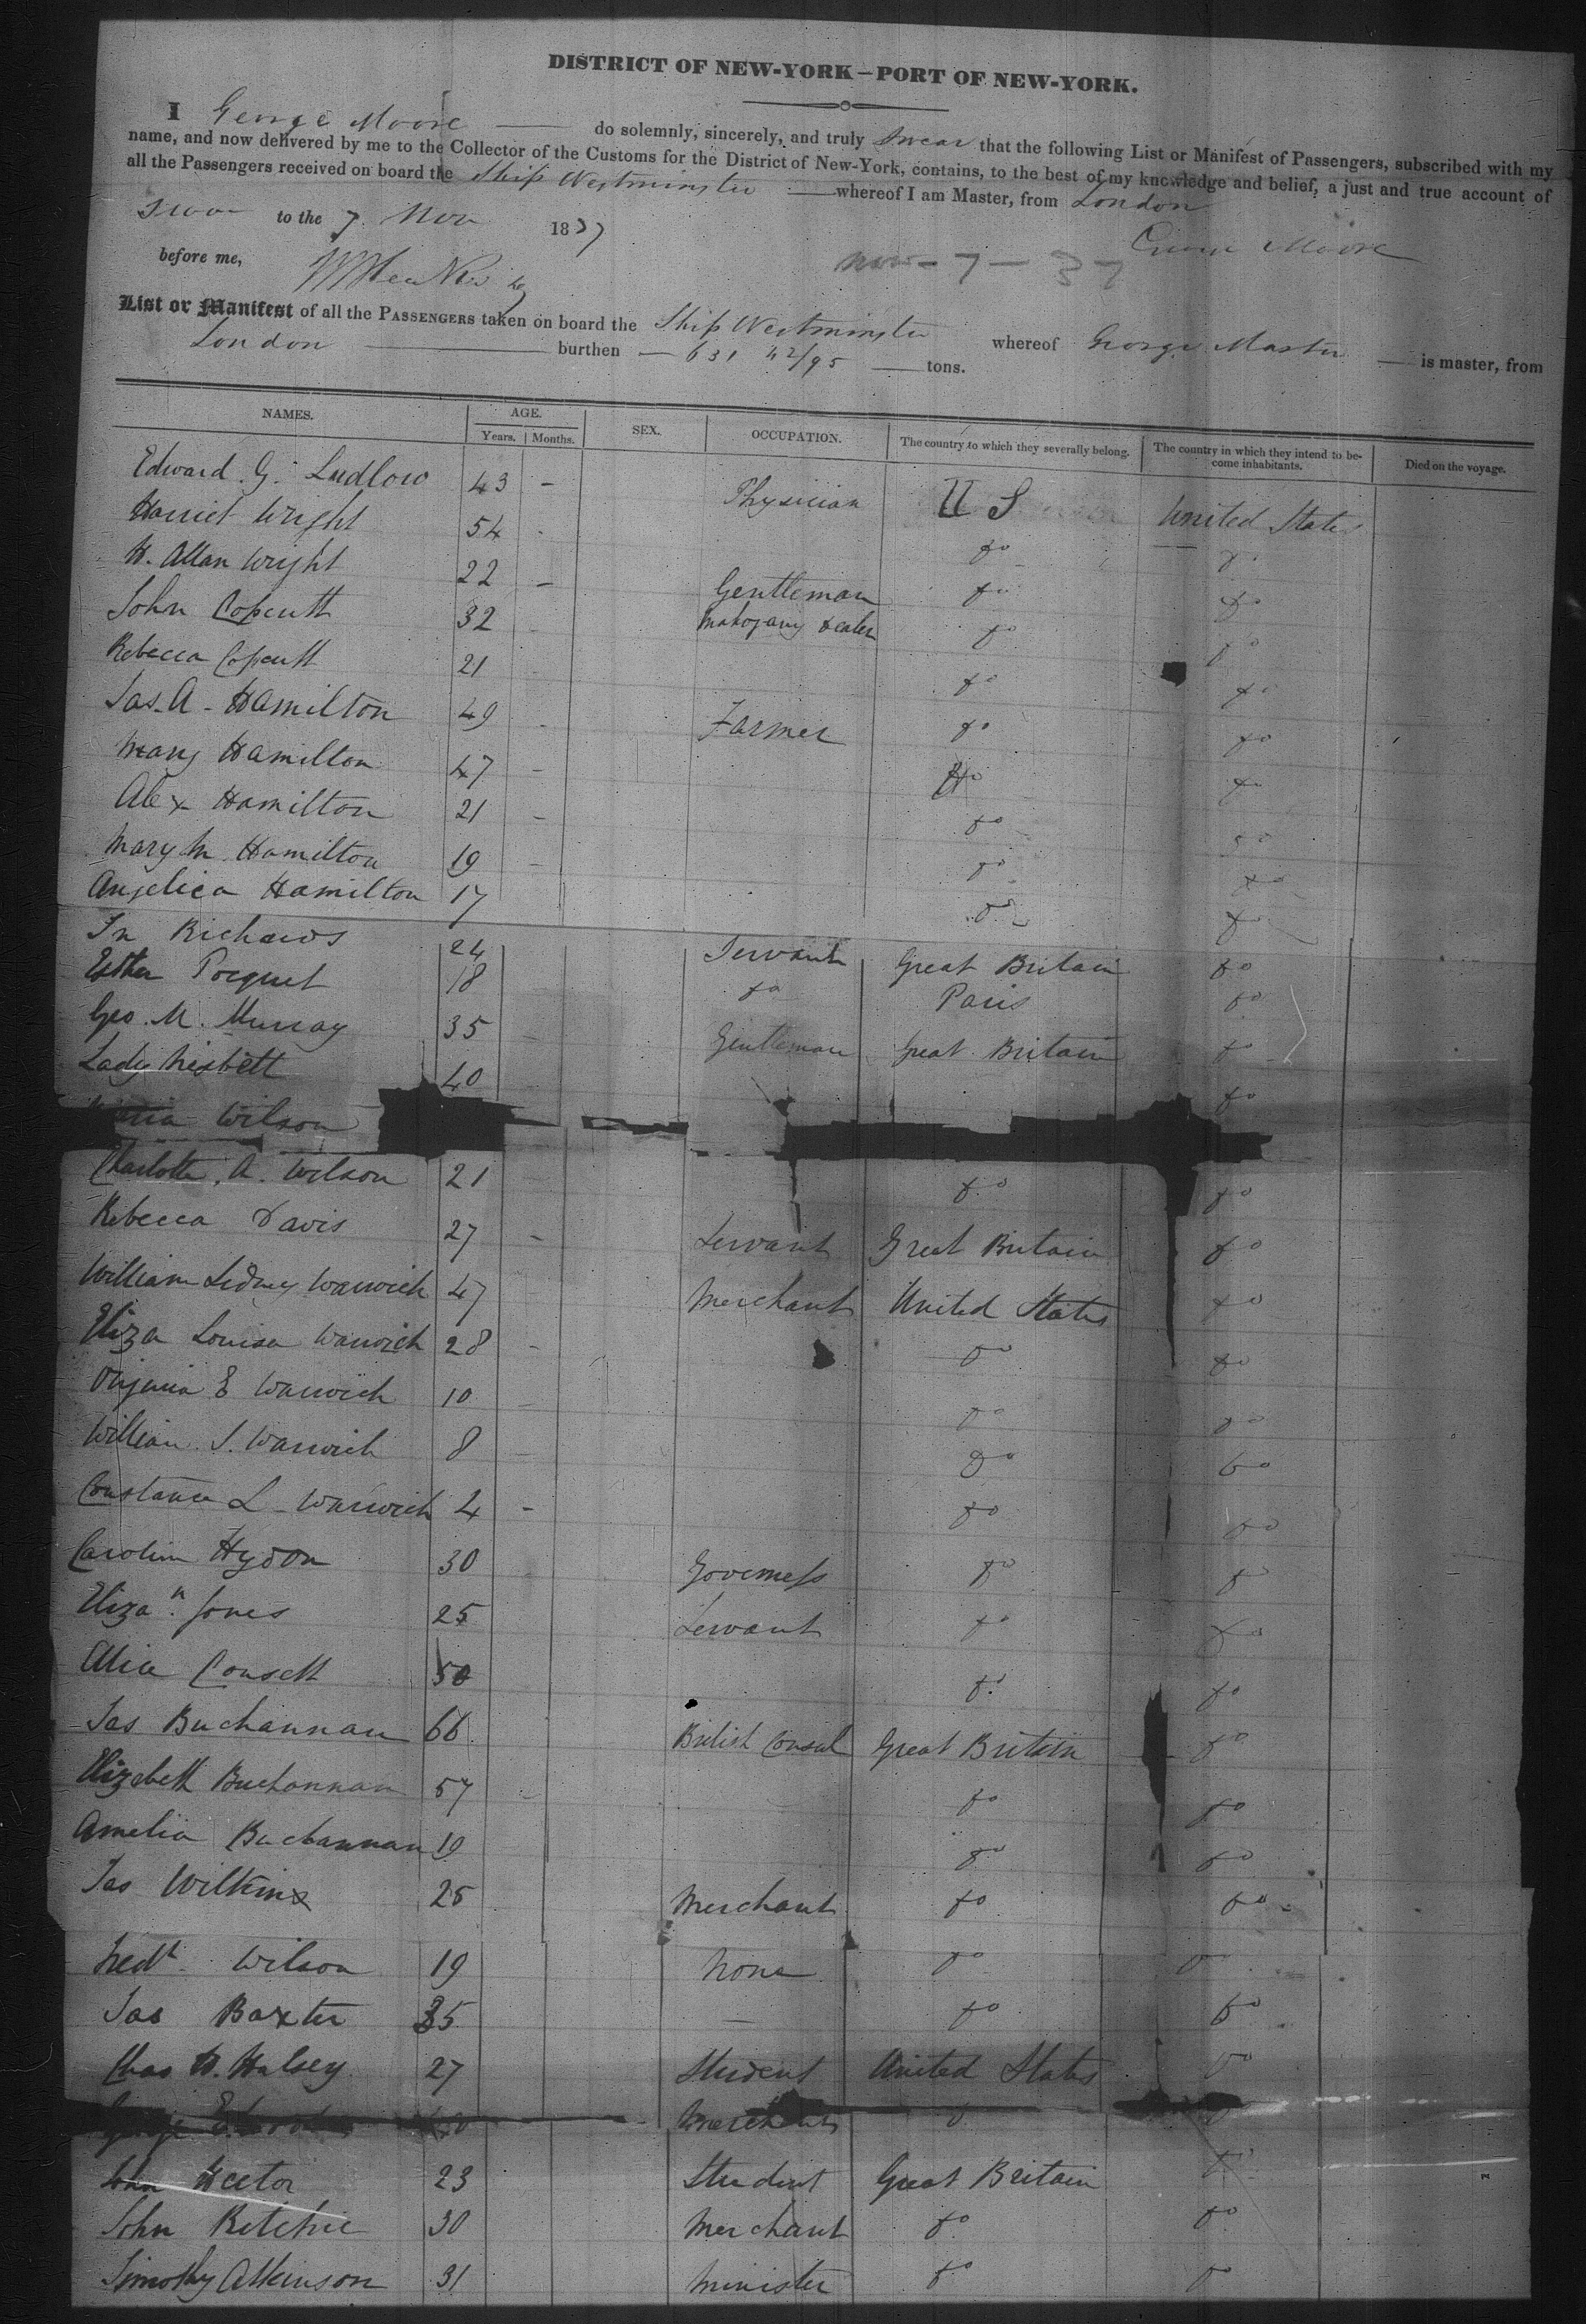 DISTRICT OF NEW-YORK—PORT OF NEW-YORK.
I George Moore do solemnly, sincerely, and truly swear that the following List or Manifest of Passengers, subscribed with my
name, and now delivered by me to the Collector of the Customs for the District of New-York, contains, to the best of my knowledge and belief, a just and true account of
all the Passengers received on board the Ship Westminster whereof I am Master, from London
to the 7 Nov 1837
George Moore
before me,
Nov - 7 - 37
List or Manifest of all the PASSENGERS taken on board the Ship Westminster whereof George Master is master, from
London burthen 631 42/95 tons.
NAMES. AGE. Years. Months. SEX. OCCUPATION. The country to which they severally belong. The country in which they intend to become inhabitants. Died on the voyage.
Edward G. Ludlow 43 - Physician U S United States
Harriet Wright 54 - do do
H. Allan Wright 22 - Gentleman do do
John Copcutt 32 - Mahogany Dealer do do
Rebecca Copcutt 21 - do do
Jas. A. Hamilton 49 - Farmer do do
Mary Hamilton 47 - do do
Alex Hamilton 21 - do do
Mary M. Hamilton 19 - do do
Angelica Hamilton 17 do do
Jn Richards 24 Servant Great Britain do
Esther 18 do Paris do
Geo. M. Murray 35 - Gentleman Great Britain do
Lady Nisbett 40 do
Wilson
Charlotte A. Wilson 21 - do do
Rebecca Davis 27 - Servant Great Britain do
William Sidney Warwick 47 Merchant United States do
Eliza Louisa Warwick 28 - do do
Virginia E Warwick 10 - do do
William S. Warwick 8 - do do
Constance L Warwick 4 - do do
Caroline Hydon 30 Governess do do
Eliza.h Jones 25 Servant do do
Alice Consett 50 do do
Jas Buchannan 66 British Consul Great Britain do
Elizabeth Buchannan 57 - do do
Amelia Buchannan 19 do do
Jas Wilkins 25 Merchant do do
Wilson 19 None do do
Jas Baxter 35 - do do
Chas H. Halsey 27 Student United States do
George Merchant do do
John Hector 23 Student Great Britain do
John Ritchie 30 Merchant do do
Timothy Atkinson 31 Minister do do